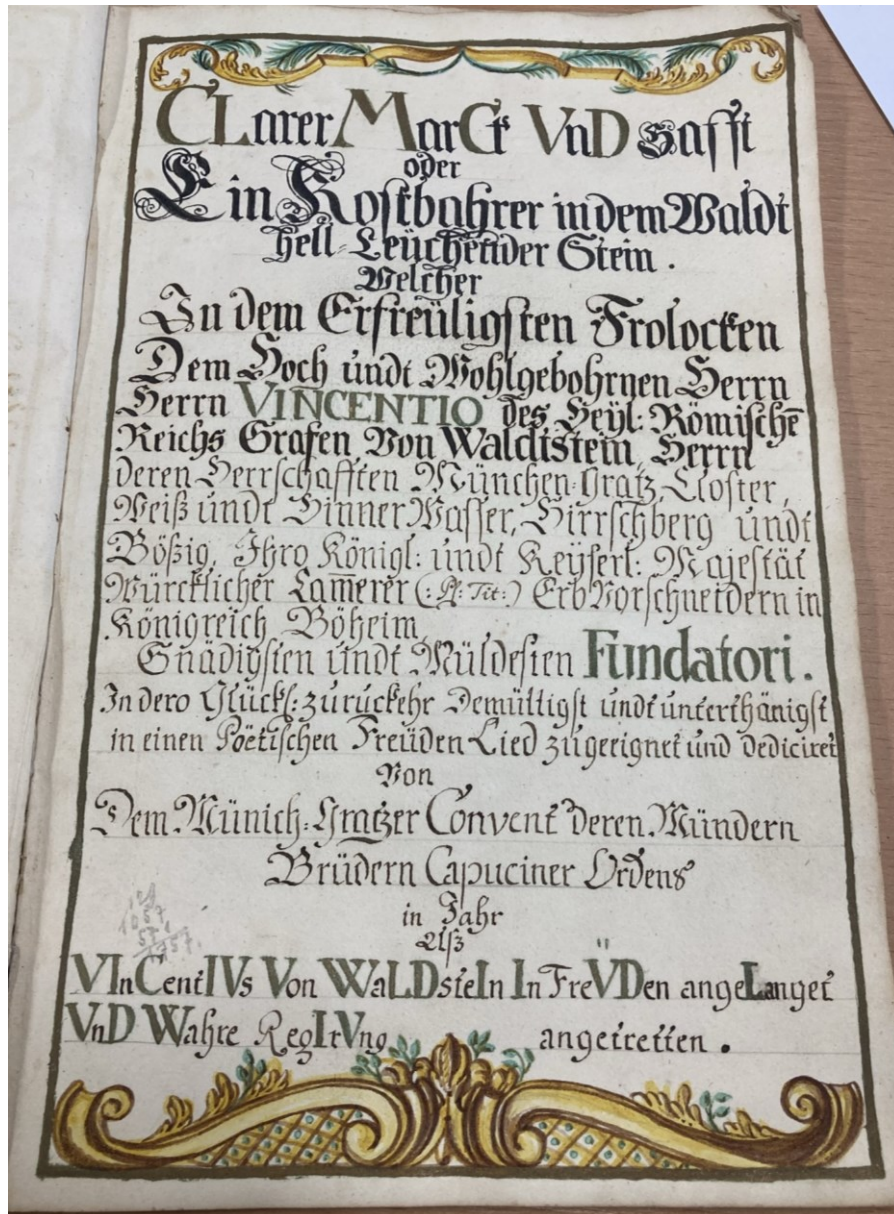 CLarer MarCk VnD Safft
oder
Ein Kostbahrer in dem Waldt
hell-Leüchender Stein.
Welcher
In dem Erfreüligsten Frolocken
Dem Hoch undt Wohlgebohrnen Herrn
Herrn VINCENTIO des Heyl: Römischē
Reichs Grafen Von Waldtstein, Herrn
deren Herrschafften München-Gratz, Closter,
Weiß undt HinnerWasser, Hirrschberg undt
Bößig, Ihro Königl: undt Keyserl: Majestät
Würcklicher Cam̄erer (: Pl: Tit:) ErbVorschneidern in
Königreich Böheim,
Gnädigsten undt Müldesten Fundatori.
In dero Glückl: zurückehr Demüttigst undt unterthänigst
in einen Poëtischen Freüden Lied zugeeignet und dediciret
Von
Dem Münich-Gratzer Convent deren Mündern
Brüdern Capuciner Ordens
in Jahr
Alß
VInCentIVs Von WaLDsteIn In FreÜDen angeLanget
VnD Wahre RegIrVng angetretten.